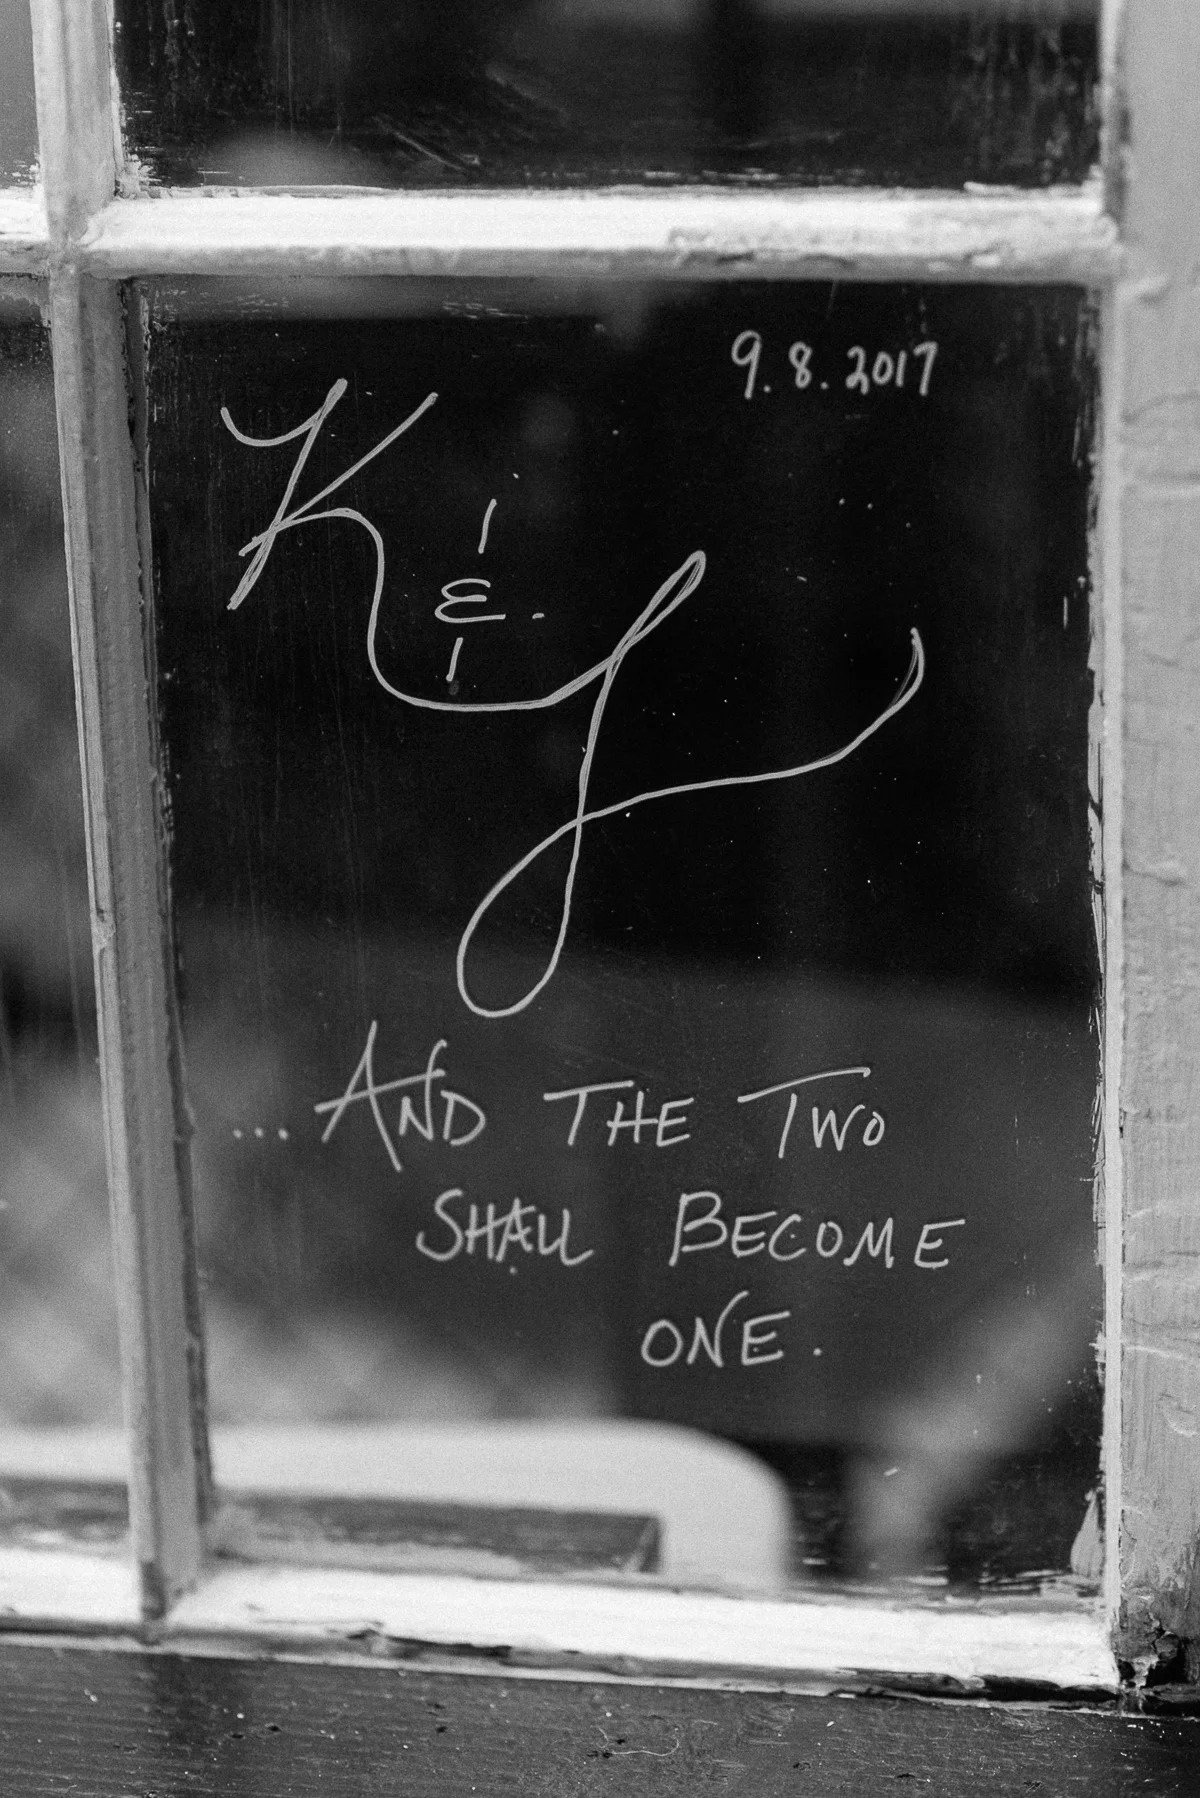 9.8.2017
K & Y
...AND THE TWO
SHALL BECOME
ONE.